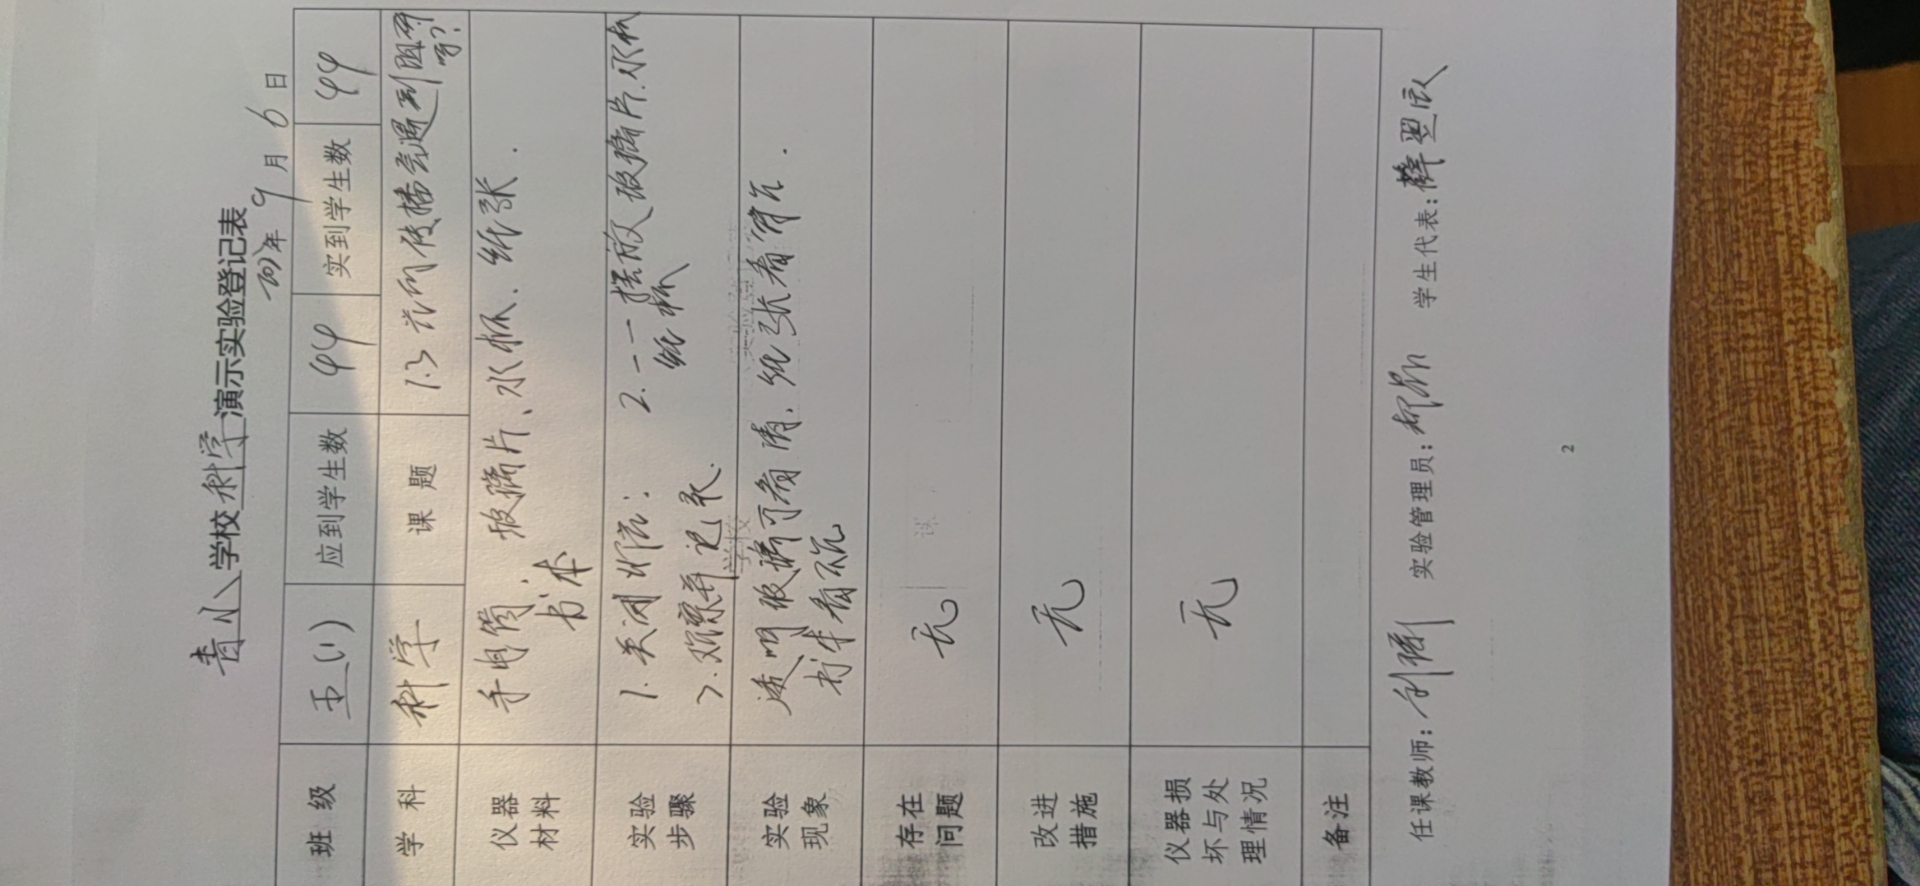 青小学校科学演示实验登记表
年9月6日
班级 五(1) 应到学生数 44 实到学生数 44
学科 科学 课题 1.3 光的传播会遇到阻碍吗?
仪器材料 手电筒、玻璃片、水杯、纸张.
书本
实验步骤 1.关闭灯光; 2.一一摆放玻璃片.水杯
纸杯
3.观察并记录.
实验现象 透明玻璃可看清,纸张看
书本看不见
存在问题 无
改进措施 无
仪器损坏与处理情况 无
备注
任课教师: 实验管理员: 学生代表:
2